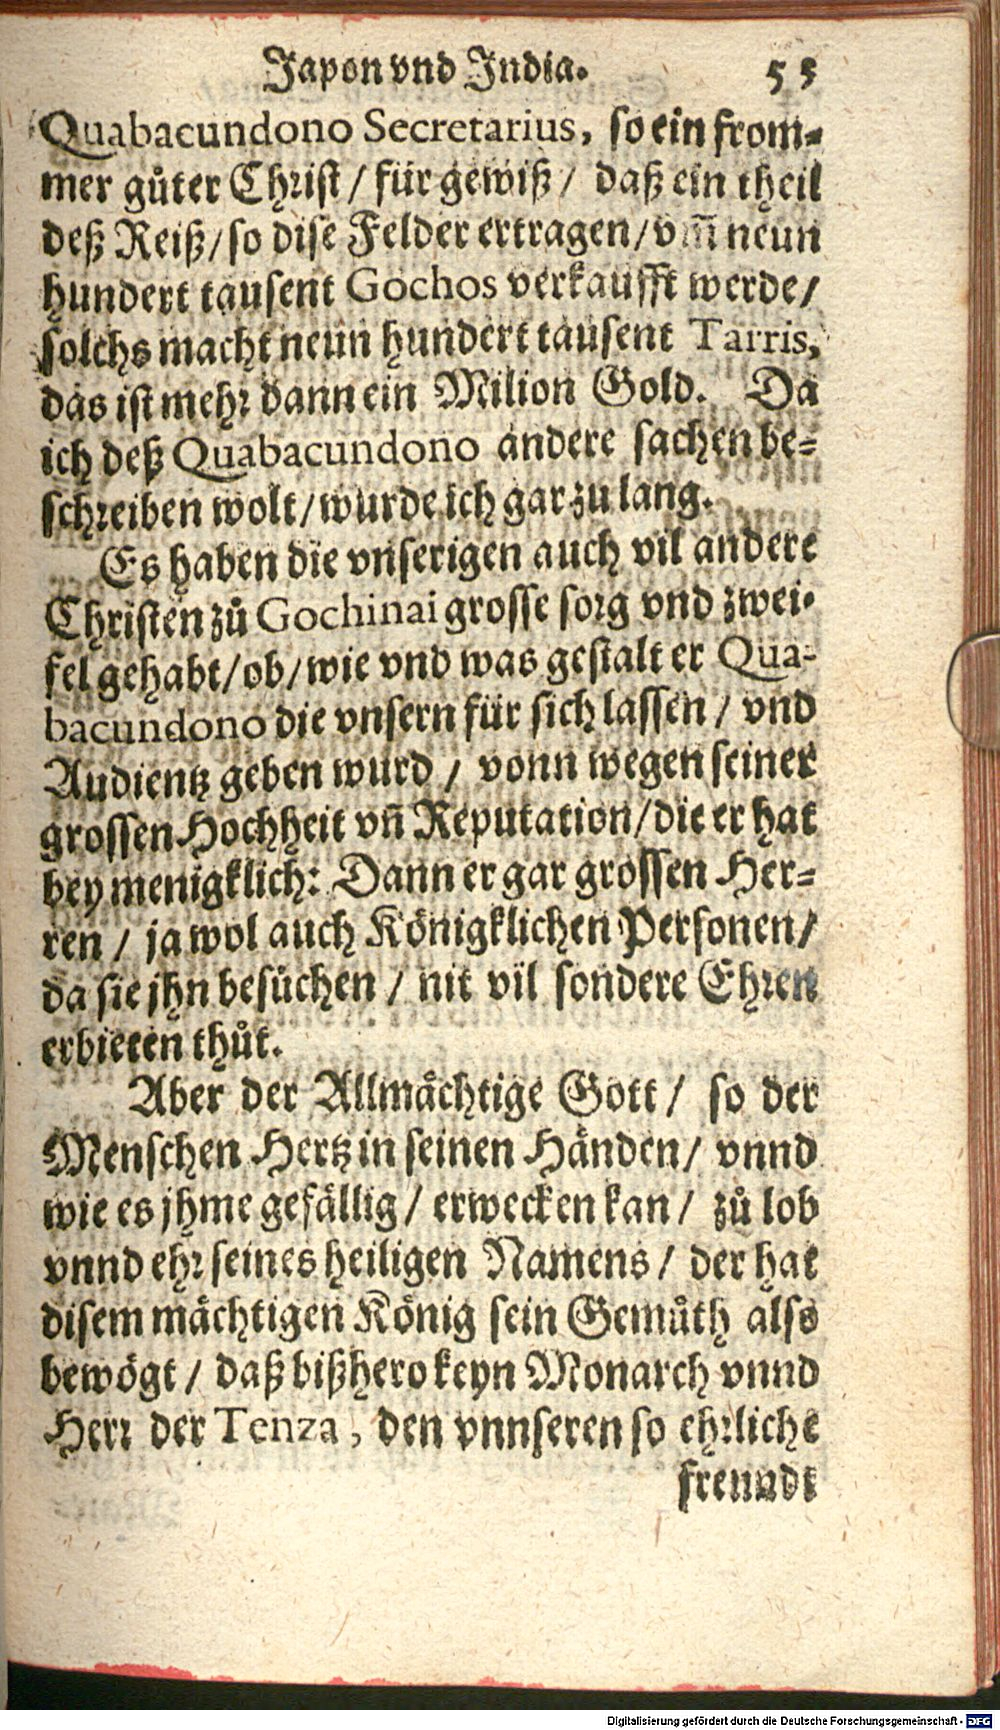 Japon vnd India. 55
Quabacundono Secretarius, so ein from-
mer gůter Christ / für gewiß / daß ein theil
deß Reiß / so dise Felder ertragen / vm̃ neun
hundert tausent Gochos verkaufft werde /
solchs macht neun hundert tausent Tarris,
das ist mehr dann ein Milion Gold. Da
ich deß Quabacundono andere sachen be-
schreiben wolt / wurde ich gar zu lang.
Es haben die vnserigen auch vil andere
Christen zů Gochinai grosse sorg vnd zwei-
fel gehabt / ob / wie vnd was gestalt er Qua-
bacundono die vnsern für sich lassen / vnd
Audientz geben wurd / vonn wegen seiner
grossen Hochheit vñ Reputation / die er hat
bey menigklich: Dann er gar grossen Her-
ren / ja wol auch Königklichen Personen /
da sie jhn besůchen / nit vil sondere Ehren
erbieten thůt.
Aber der Allmächtige Gott / so der
Menschen Hertz in seinen Händen / vnnd
wie es jhme gefällig / erwecken kan / zů lob
vnnd ehr seines heiligen Namens / der hat
disem mächtigen König sein Gemůth also
bewögt / daß bißhero keyn Monarch vnnd
Herr der Tenza, den vnnseren so ehrliche
freundt
Digitalisierung gefördert durch die Deutsche Forschungsgemeinschaft - DFG